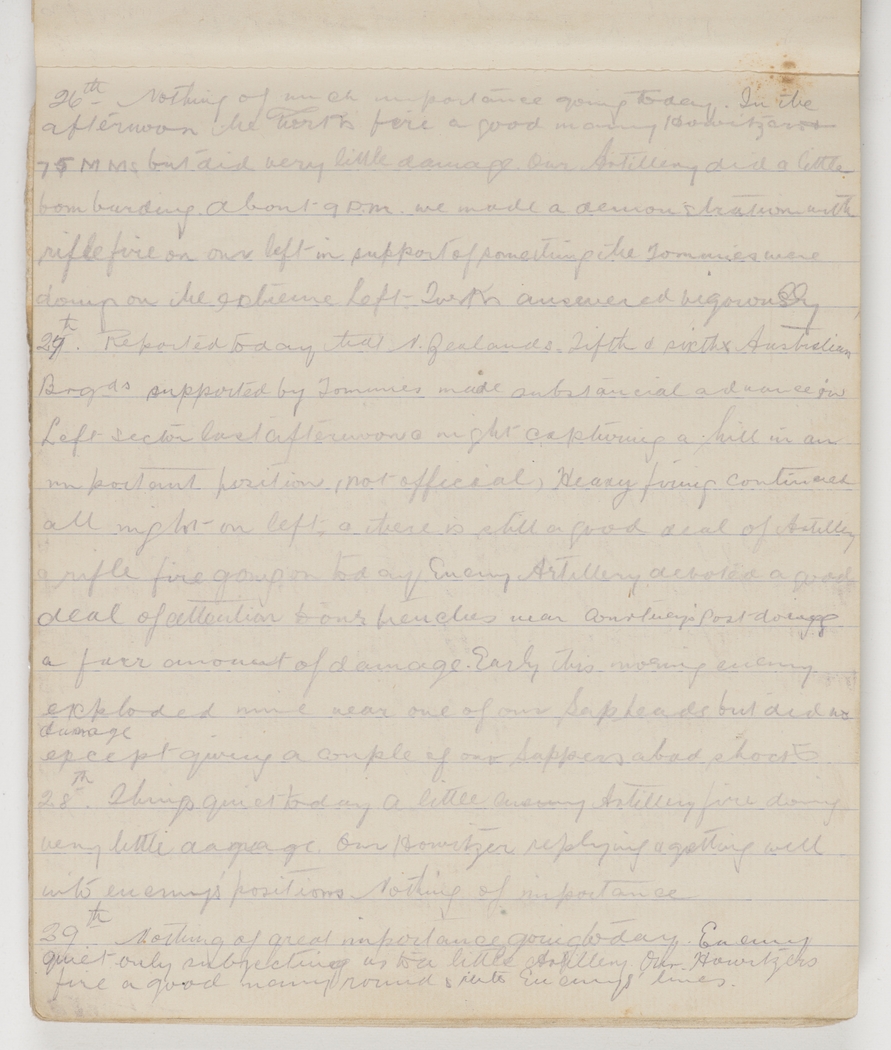 26th Nothing of much importance going today. In the
afternoon the Turks fire a good many Howitzers &
75 MMs but did very little damage. Our Artillery did a little
bombarding. about 9 p.m. we made a demonstration with
rifle fire on our left in support of something the Tommies were
doing on the extreme Left. Turks answered vigorously
27th. Reported today that N. Zealands. Fifth & sixth Australian
Brgds supported by Tommies made substancial advance in
Left sector last afternoon & night capturing a hill in an
important position, (not official) Heavy firing continued
all night on left, & there is still a good deal of Artillery
& rifle fire going on today, Enemy Artillery devoted a good
deal of attention to our trenches near Courtney's Post doing
a fair amount of damage. Early this morning enemy
exploded mine near one of our Sapheads but did no
damage
except giving a couple of our Sappers a bad shock.
28th. Things quiet today a little enemy Artillery fire doing
very little damage. Our Howitzer replying & getting well
into enemys' positions. Nothing of importance
29th Nothing of great importance going today. Enemy
quiet only subjecting us to a little Artillery Our Howitzers
fire a good many rounds into Enemys' lines.